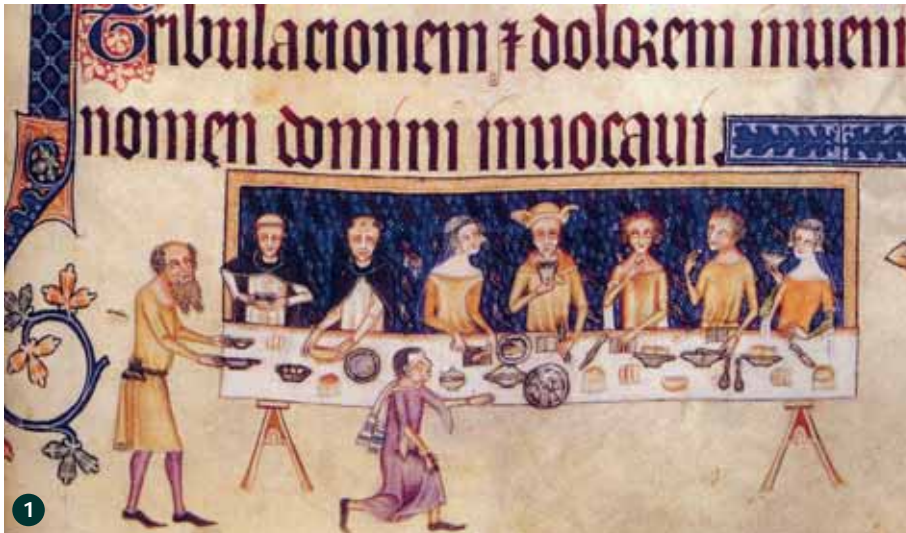 Tribulacionem ⁊ dolorem inueni
nomen domini inuocaui.
1